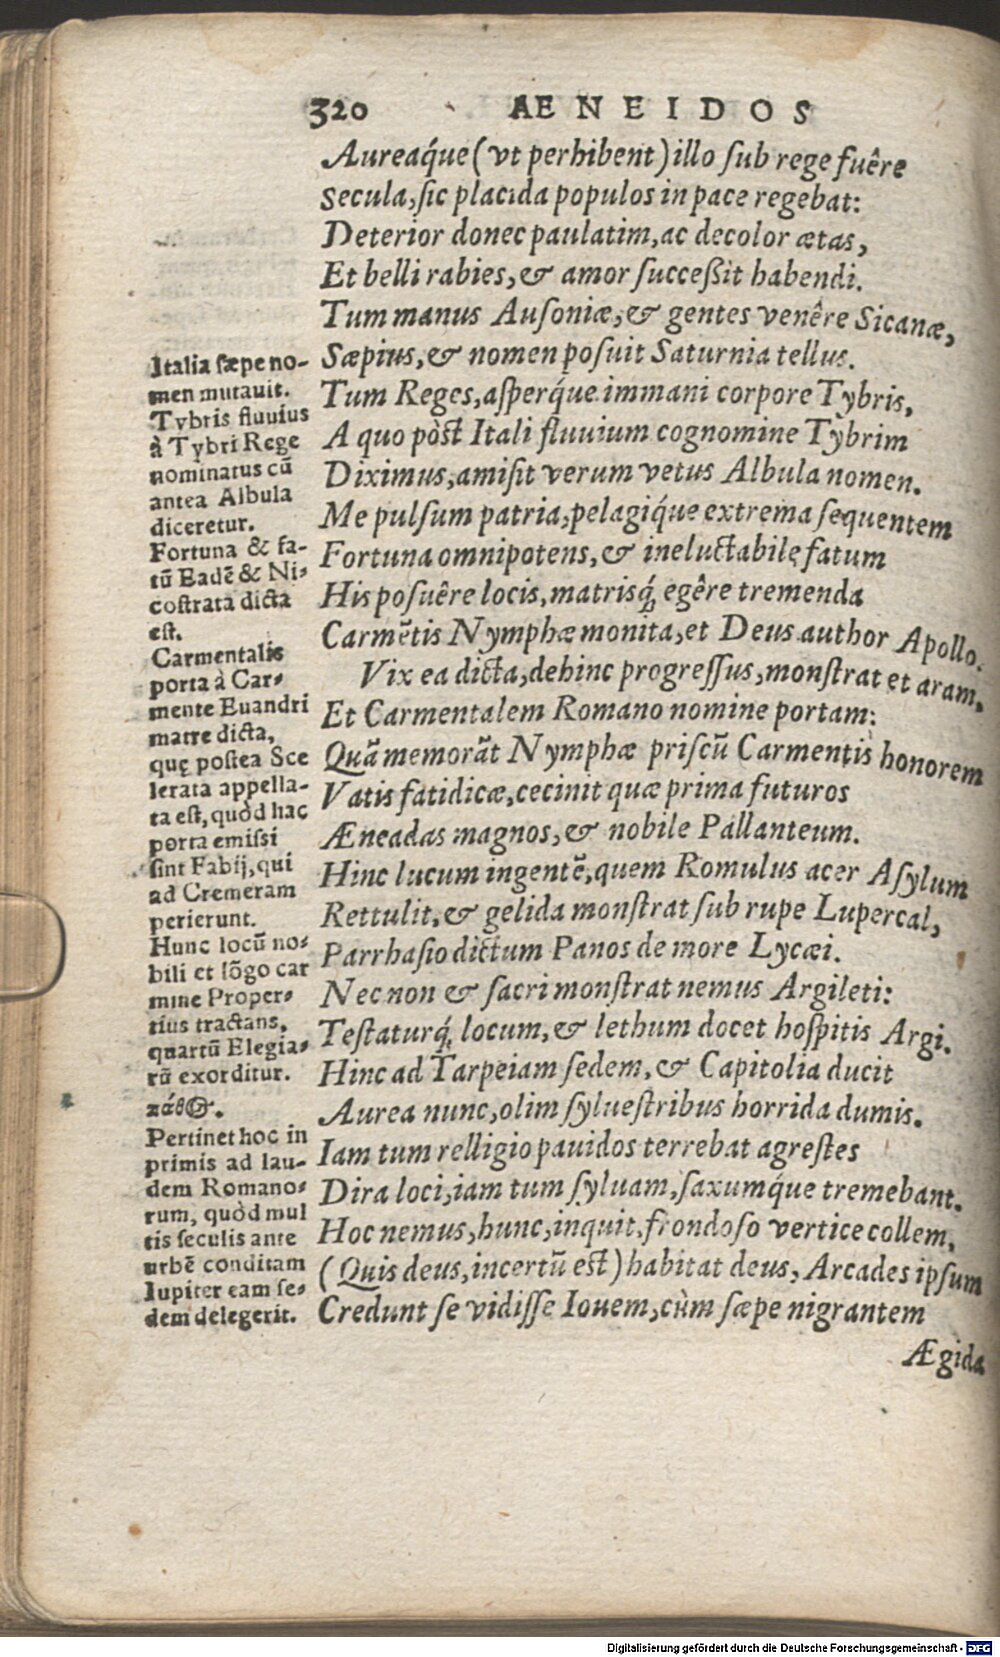 320 AENEIDOS
Aureaq́ue (vt perhibent) illo ſub rege fuêre
Secula, ſic placida populos in pace regebat:
Deterior donec paulatim, ac decolor ætas,
Et belli rabies, & amor ſucceßit habendi.
Tum manus Auſoniæ, & gentes venêre Sicanæ,
Sæpius, & nomen poſuit Saturnia tellus.
Tum Reges, aſperq́ue immani corpore Tybris,
A quo pòst Itali fluuium cognomine Tybrim
Diximus, amiſit verum vetus Albula nomen.
Me pulſum patria, pelagiq́ue extrema ſequentem
Fortuna omnipotens, & ineluctabilę fatum
His poſuêre locis, matrisq́; egêre tremenda
Carmētis Nymphæ monita, et Deus author Apollo.
Vix ea dicta, dehinc progreſſus, monſtrat et aram,
Et Carmentalem Romano nomine portam:
Quā memorāt Nymphæ priſcū Carmentis honorem
Vatis fatidicæ, cecinit quæ prima futuros
Æneadas magnos, & nobile Pallanteum.
Hinc lucum ingentē, quem Romulus acer Aſylum
Rettulit, & gelida monſtrat ſub rupe Lupercal,
Parrhaſio dictum Panos de more Lycæi.
Nec non & ſacri monſtrat nemus Argileti:
Teſtaturq́; locum, & lethum docet hoſpitis Argi.
Hinc ad Tarpeiam ſedem, & Capitolia ducit
Aurea nunc, olim ſylueſtribus horrida dumis.
Iam tum relligio pauidos terrebat agreſtes
Dira loci, iam tum ſyluam, ſaxumq́ue tremebant.
Hoc nemus, hunc, inquit, frondoſo vertice collem,
(Quis deus, incertū est) habitat deus, Arcades ipſum
Credunt ſe vidiſſe Iouem, cùm ſæpe nigrantem
Ægida
Italia ſæpe no-
men mutauit.
Tybris fluuius
à Tybri Rege
nominatus cū
antea Albula
diceretur.
Fortuna & fa-
tū Eadē & Ni-
coſtrata dicta
eſt.
Carmentalis
porta à Car-
mente Euandri
matre dicta,
quę poſtea Sce
lerata appella-
ta eſt, quòd hac
porta emiſsi
ſint Fabij, qui
ad Cremeram
perierunt.
Hunc locū no-
bili et lōgo car
mine Proper-
tius tractans,
quartū Elegia-
rū exorditur.
πάθ⊙.
Pertinet hoc in
primis ad lau-
dem Romano-
rum, quòd mul
tis ſeculis ante
urbē conditam
Iupiter eam ſe-
dem delegerit.
Digitalisierung gefördert durch die Deutsche Forschungsgemeinschaft - DFG